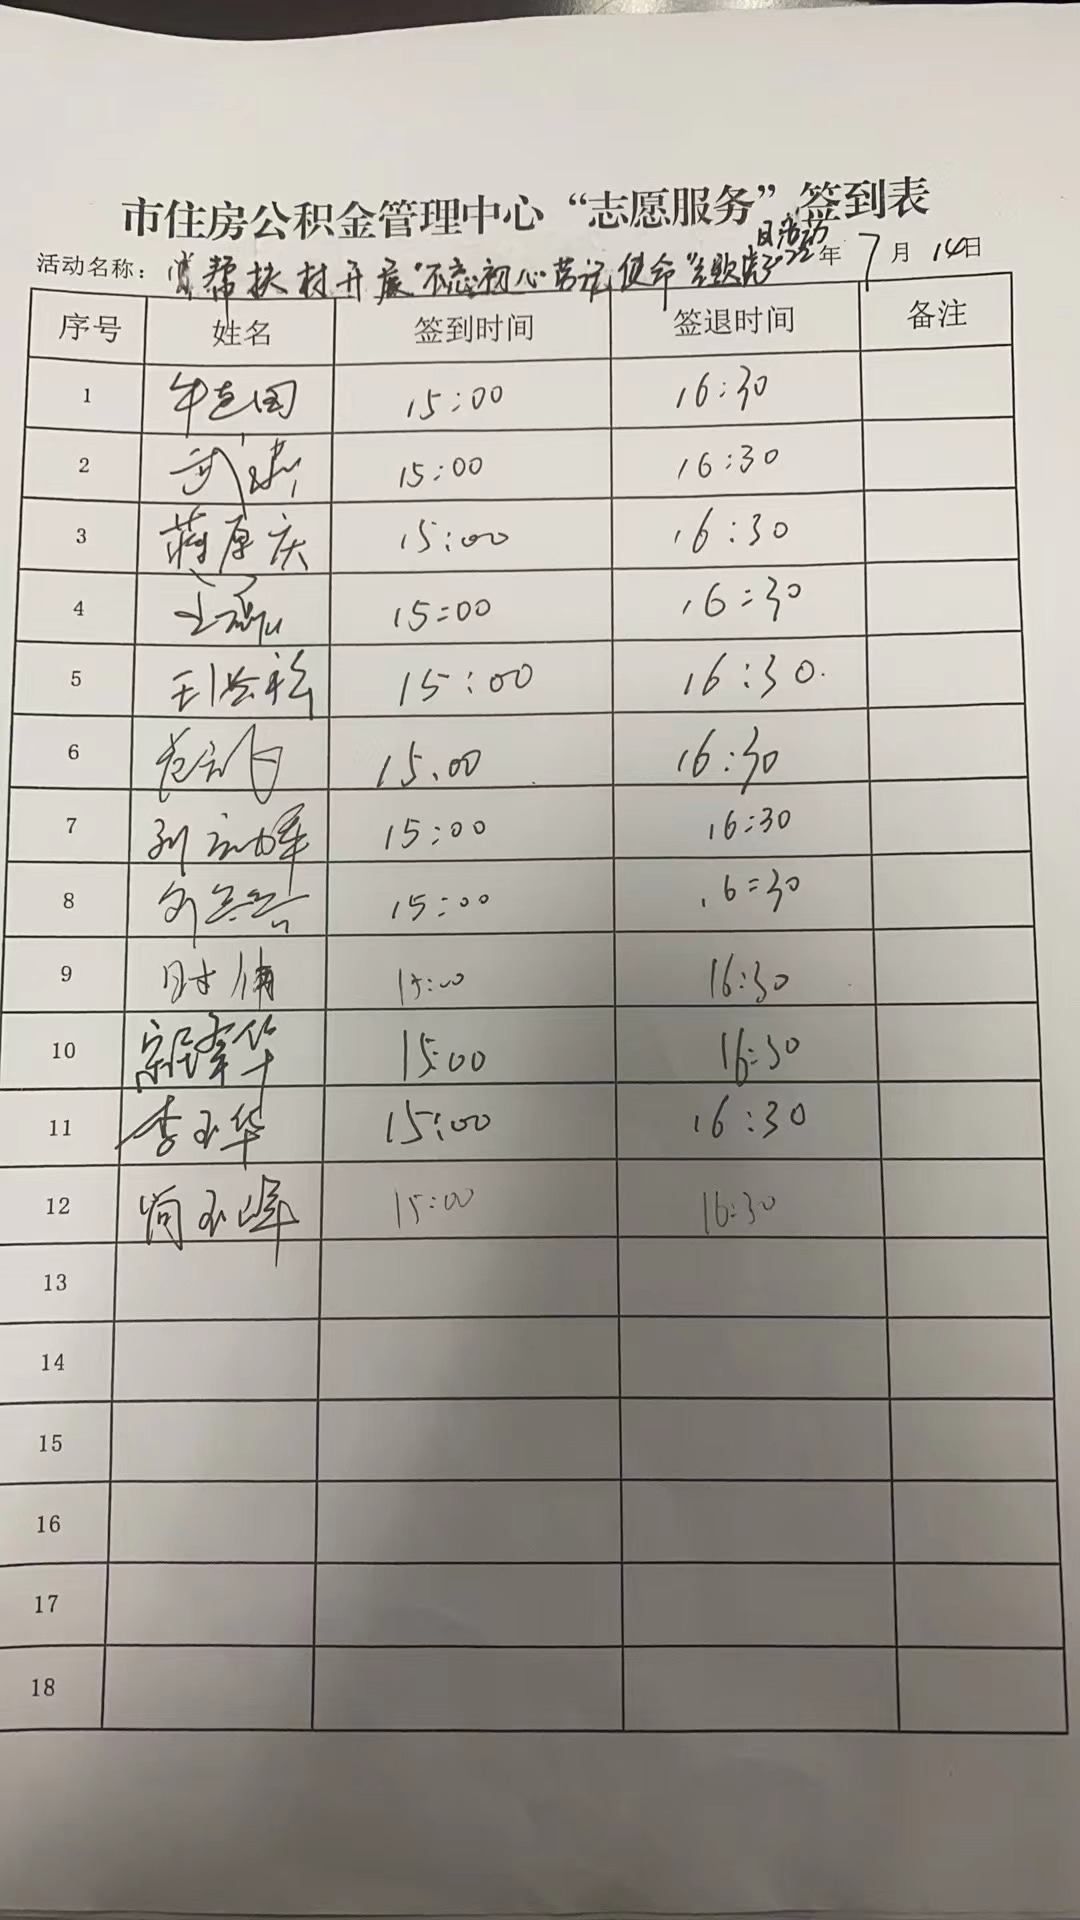 市住房公积金管理中心“志愿服务”签到表
日活动
活动名称：帮扶村开展“不忘初心牢记使命”主题党 2022年7月14日
序号 姓名 签到时间 签退时间 备注
1 15:00 16:30
2 武 15:00 16:30
3 蒋厚庆 15:00 16:30
4 15:00 16:30
5 15:00 16:30
6 范 15.00 16:30
7 刘 15:00 16:30
8 15:00 16:30
9 时倩 15:00 16:30
10 15:00 16:30
11 李玉华 15:00 16:30
12 尚玉峰 15:00 16:30
13
14
15
16
17
18